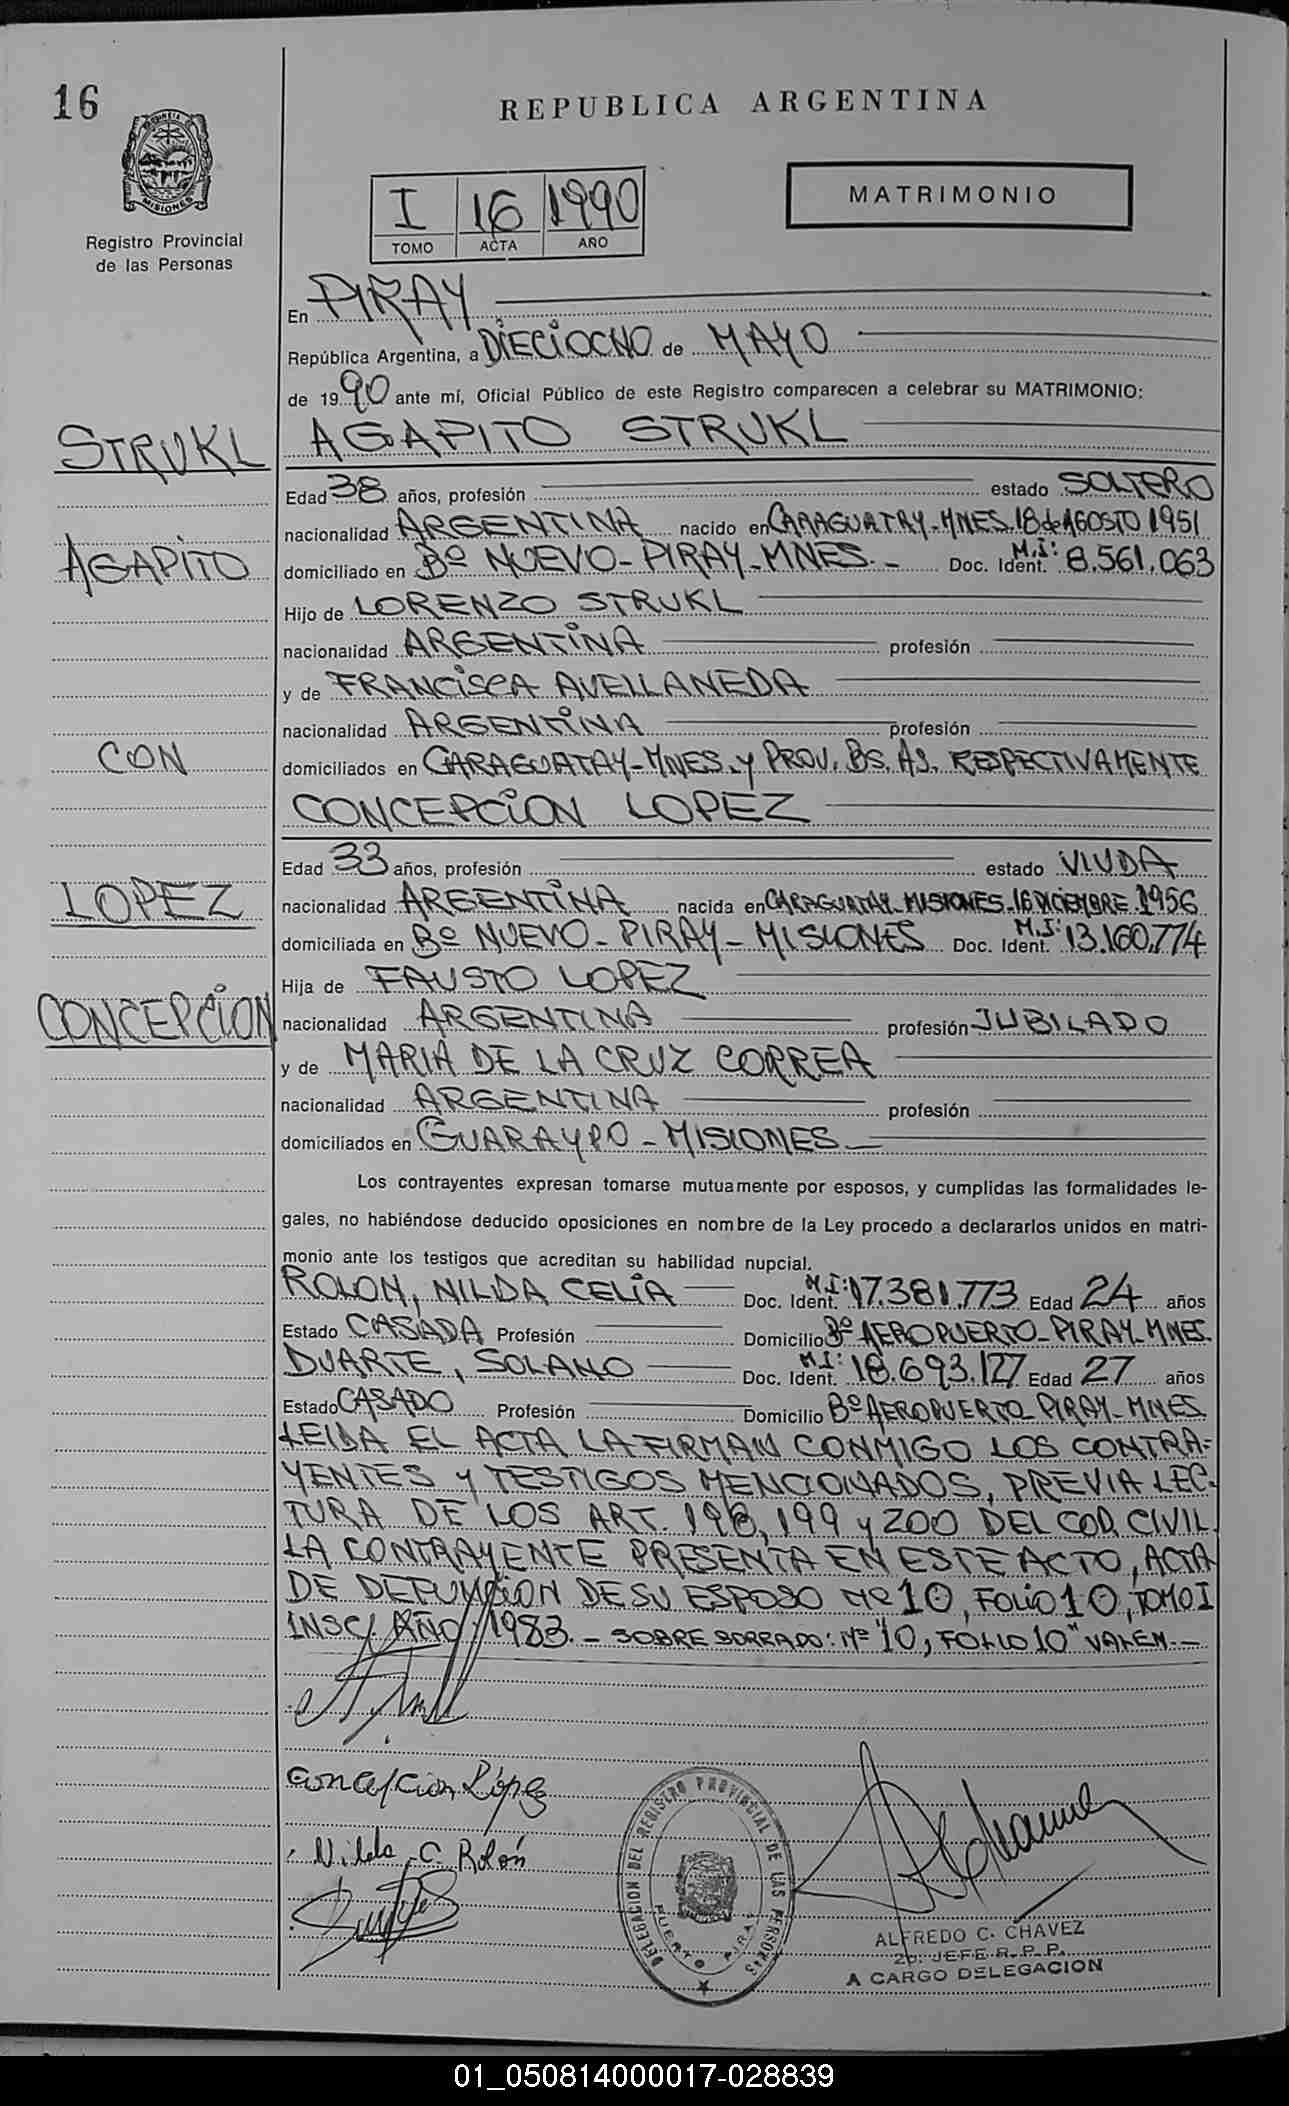 16
REPUBLICA ARGENTINA
PROVINCIA DE MISIONES
Registro Provincial
de las Personas
I 16 1990
TOMO ACTA AÑO
MATRIMONIO
En PIRAY
República Argentina, a DIECIOCHO de MAYO
de 1990 ante mí, Oficial Público de este Registro comparecen a celebrar su MATRIMONIO:
STRUKL
AGAPITO
CON
LOPEZ
CONCEPCION
AGAPITO STRUKL
Edad 38 años, profesión estado SOLTERO
nacionalidad ARGENTINA nacido en CARAGUATAY-MNES. 18 de AGOSTO 1951
domiciliado en Bº NUEVO-PIRAY-MNES.- Doc. Ident. M.I: 8.561.063
Hijo de LORENZO STRUKL
nacionalidad ARGENTINA profesión
y de FRANCISCA AVELLANEDA
nacionalidad ARGENTINA profesión
domiciliados en CARAGUATAY-MNES. y PROV. BS. AS. RESPECTIVAMENTE
CONCEPCION LOPEZ
Edad 33 años, profesión estado VIUDA
nacionalidad ARGENTINA nacida en CARAGUATAY-MISIONES-16 DICIEMBRE 1956
domiciliada en Bº NUEVO-PIRAY-MISIONES Doc. Ident. M.I: 13.160.774
Hija de FAUSTO LOPEZ
nacionalidad ARGENTINA profesión JUBILADO
y de MARIA DE LA CRUZ CORREA
nacionalidad ARGENTINA profesión
domiciliados en GUARAYPO-MISIONES-
Los contrayentes expresan tomarse mutuamente por esposos, y cumplidas las formalidades le-
gales, no habiéndose deducido oposiciones en nombre de la Ley procedo a declararlos unidos en matri-
monio ante los testigos que acreditan su habilidad nupcial.
ROLON, NILDA CELIA Doc. Ident. M.I: 17.381.773 Edad 24 años
Estado CASADA Profesión Domicilio Bº AEROPUERTO-PIRAY-MNES.
DUARTE, SOLANO Doc. Ident. M.I: 18.693.127 Edad 27 años
Estado CASADO Profesión Domicilio Bº AEROPUERTO PIRAY-MNES.
LEIDA EL ACTA LA FIRMAN CONMIGO LOS CONTRA-
YENTES y TESTIGOS MENCIONADOS, PREVIA LEC-
TURA DE LOS ART. 198, 199 y 200 DEL COD. CIVIL.
LA CONTRAYENTE PRESENTA EN ESTE ACTO, ACTA
DE DEFUNCION DE SU ESPOSO Nº 10, FOLIO 10, TOMO I
INSC. AÑO 1983.- SOBRE BORRADO: Nº "10, FOLIO 10" VALEN.-
Concepcion López
Nilda C. Rolón
DELEGACION DEL REGISTRO PROVINCIAL DE LAS PERSONAS
PUERTO PIRAY
ALFREDO C. CHAVEZ
2do. JEFE R. P. P.
A CARGO DELEGACION
01_050814000017-028839